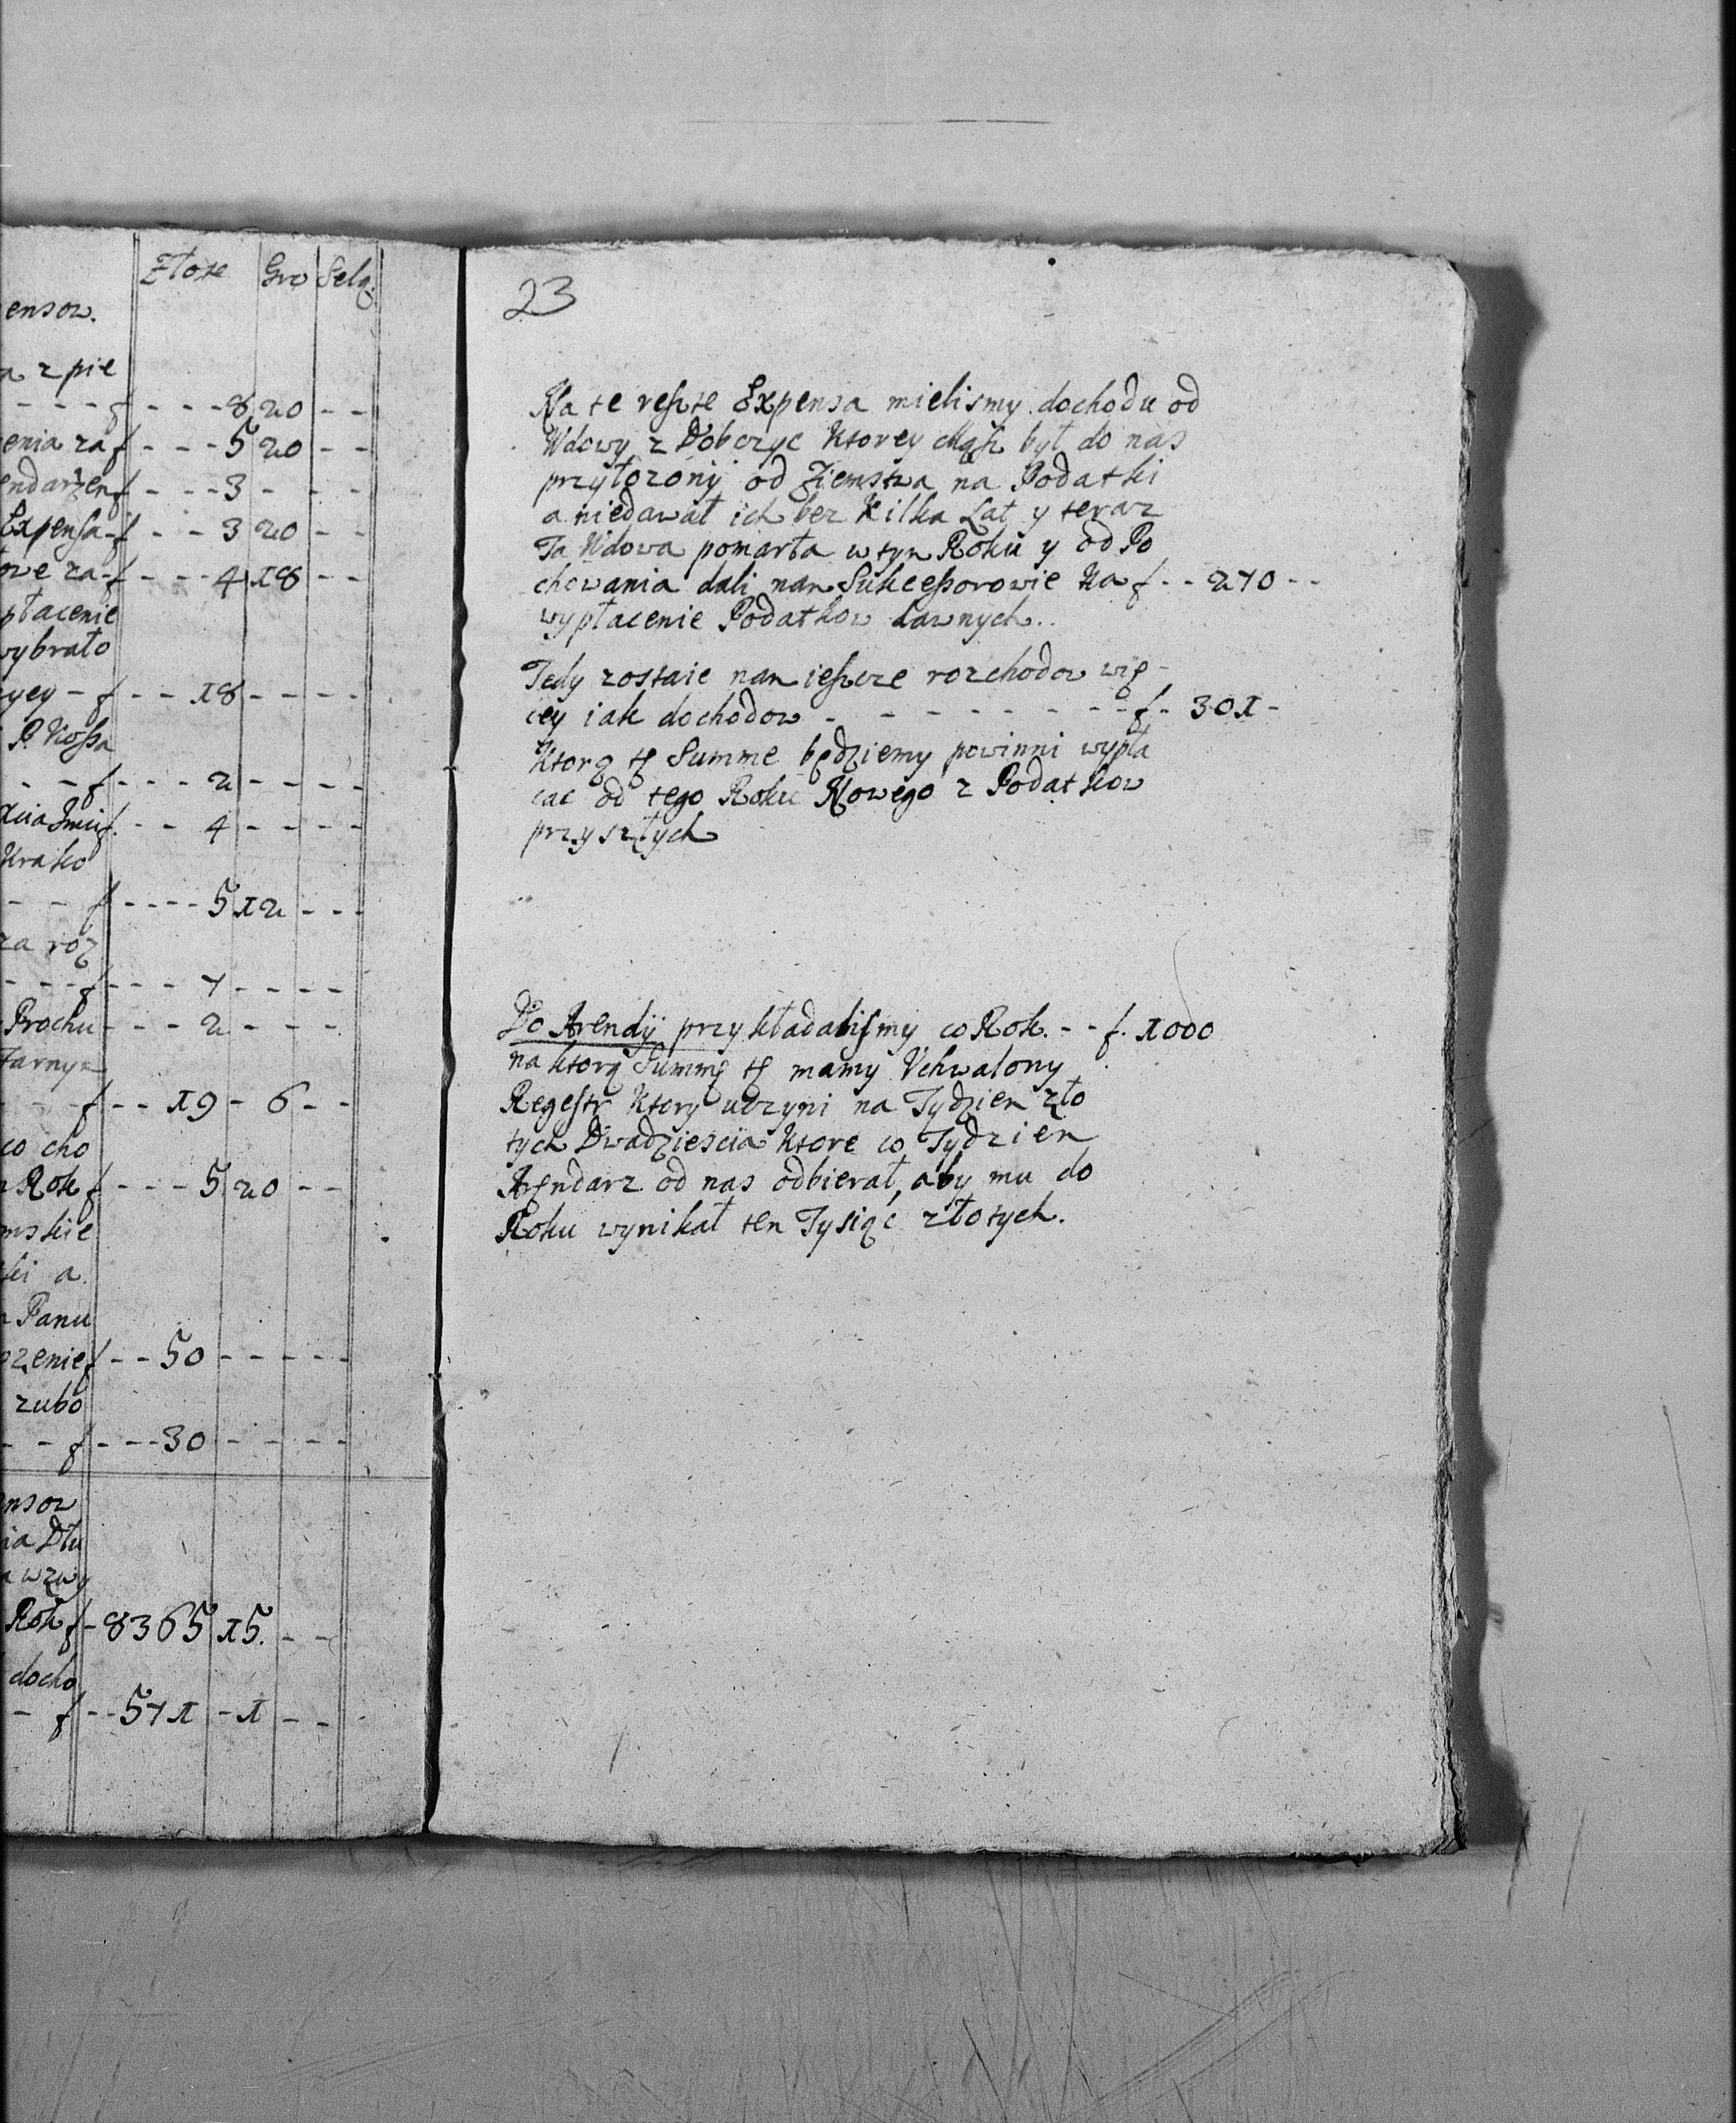 Złote Gro Selą.
ensow.
a z pie
- - - f - - - 8 20 - -
enia za f - - - 5 20 - -
endarzen f - - - 3 - - -
Expensa - f - - 3 20 - -
owe za - f - - - 4 18 - -
płacenie
wybrało
yey - f - - 18 - - - -
P. Kossa
- - f - - - 2 - - - -
f - - 4 - - - -
Krako
- - f - - - - 5 12 - - -
za roz
- - - f - - - 7 - - - -
Prochu - - - 2 - - -
tarnym
- - f - - 19 - 6 - -
co cho
Rok f - - - 5 20 - -
mskie
ki a
Panu
ozenie f - - 50 - - - - -
zubo
- - f - - - 30 - - - -
ensow
ia Dłu
a wzwy
Rok f - 8365 15. - -
docho
- f - - 571 - 1 - -
23
Na te reszte Expensa mielismy dochodu od
Wdowy z Dobczyc Ktorey Mąsz był do nas
przyłozony od Ziemstwa na Podatki
a niedawał ich bez Kilka Lat y teraz
Ta Wdowa pomarła w tym Roku y od Po
chowania dali nam Sukcessorowie Na f - - 270 - -
wypłacenie Podatkow dawnych..
Tedy zostaie nam ieszcze rozchodow wię-
cey iak dochodow - - - - - - - - f - 301 -
Ktorą tę Summe będziemy powinni wypła
cac od tego Roku Nowego z Podatkow
przyszłych
Do Arendy przykładalismy co Rok. - - f. 1000
na ktorą Summę tę mamy Uchwalony
Regestr Ktory uczyni na Tydzien zło
tych Dwadziescia Ktore co Tydzien
Arendarz od nas odbierał, aby mu do
Roku wynikał ten Tysiąc złotych.